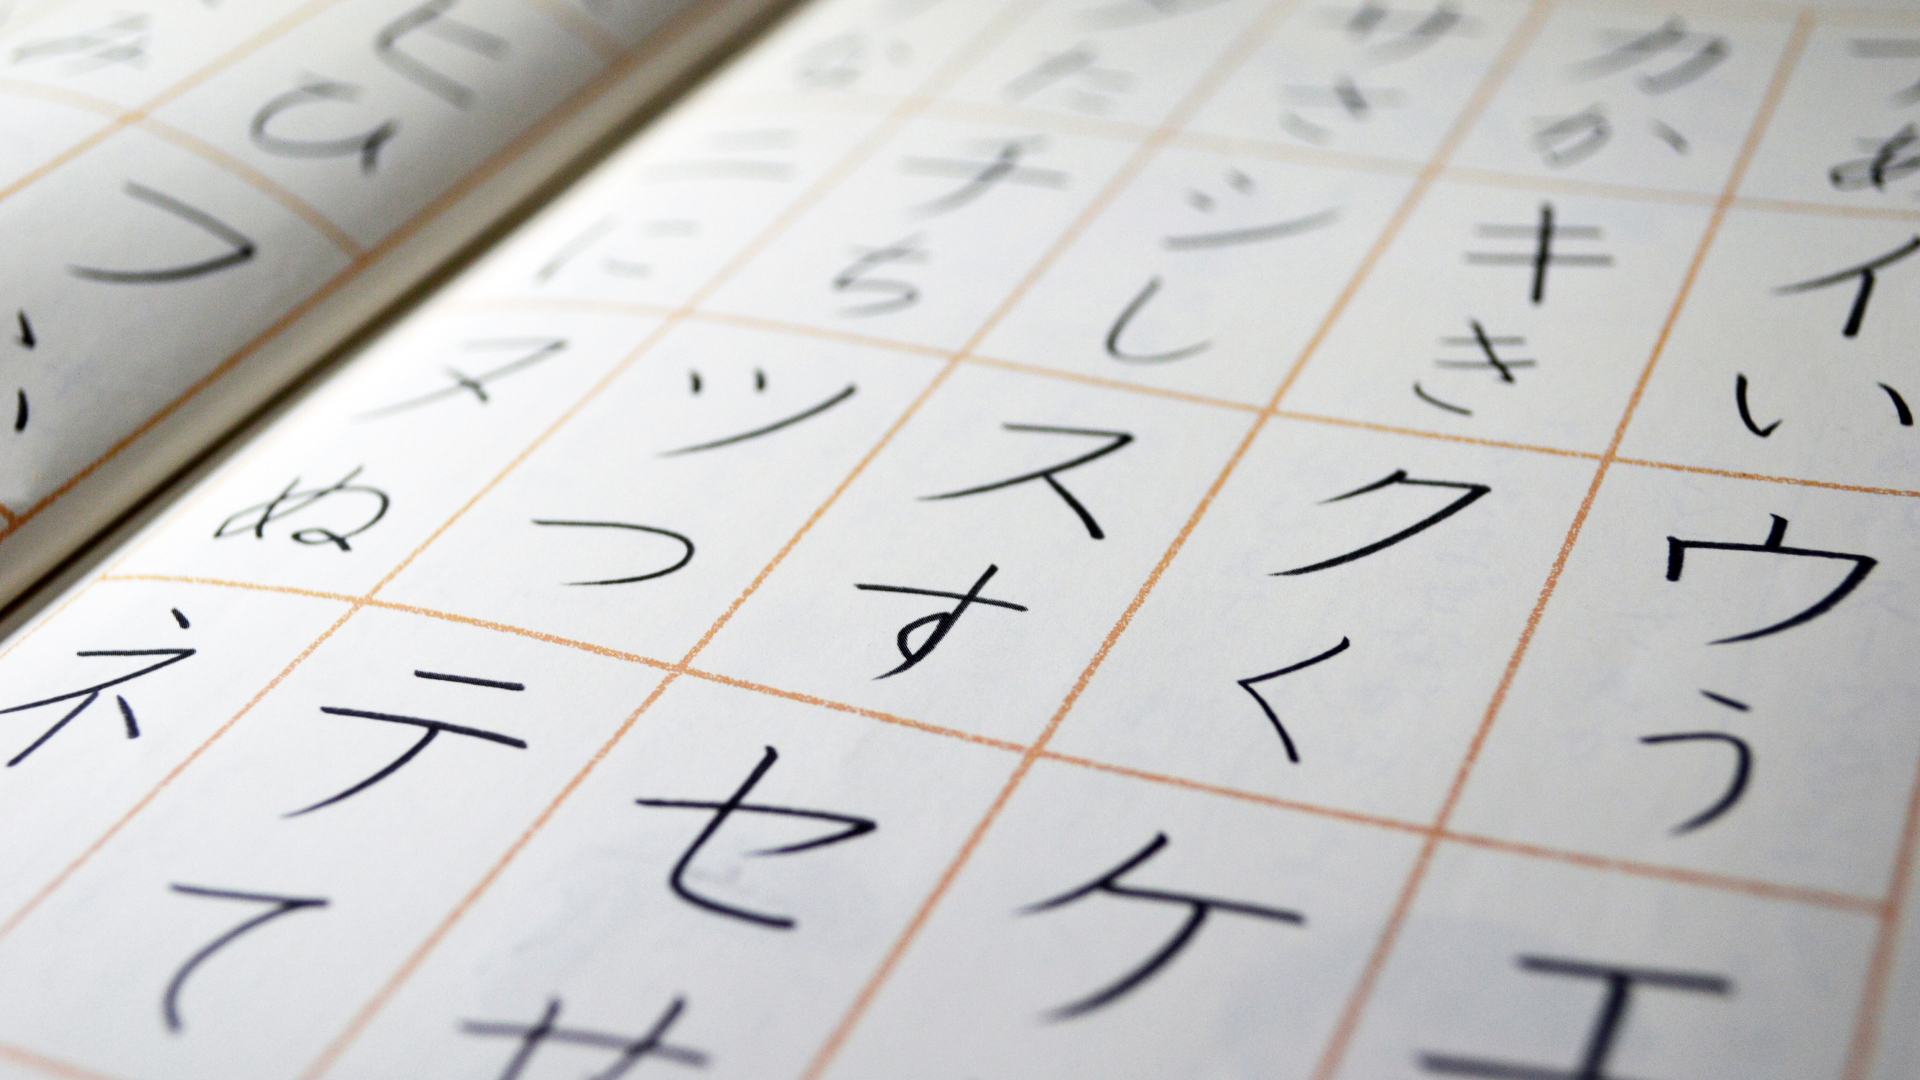 あ イ い ウ う エ
カ か キ き ク く ケ
サ さ シ し ス す セ せ
た チ ち ツ つ テ て
な ニ に ヌ ぬ ネ
ヒ ひ フ